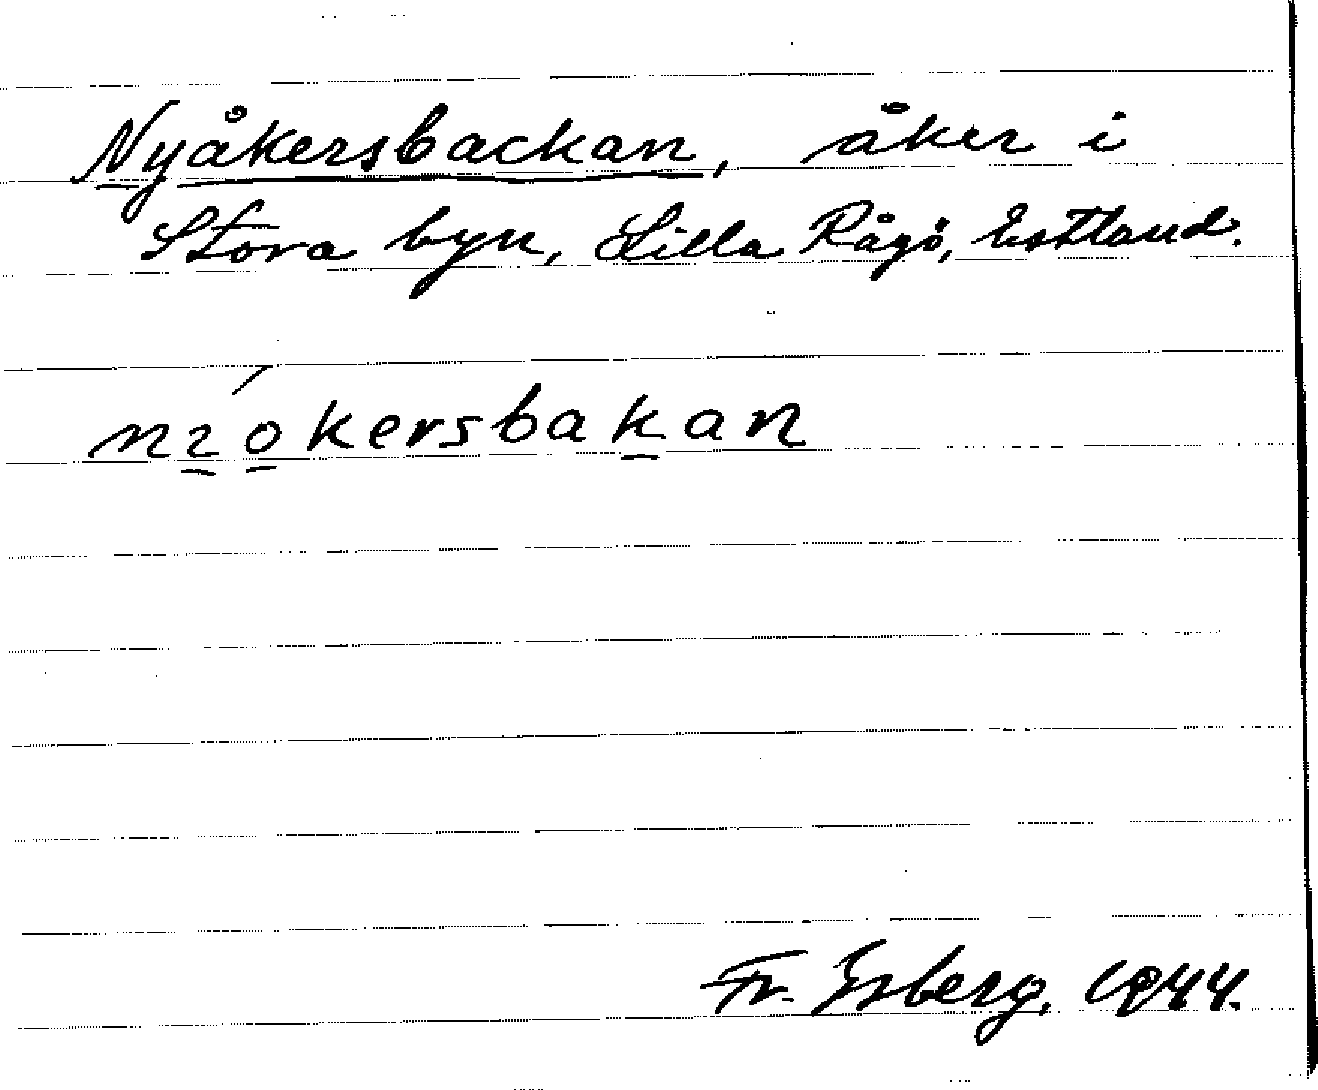 Nyåkersbackan, åker i
Stora byn, Lilla Rågö, Estland.
nıókersbakan
Fr. 1944.